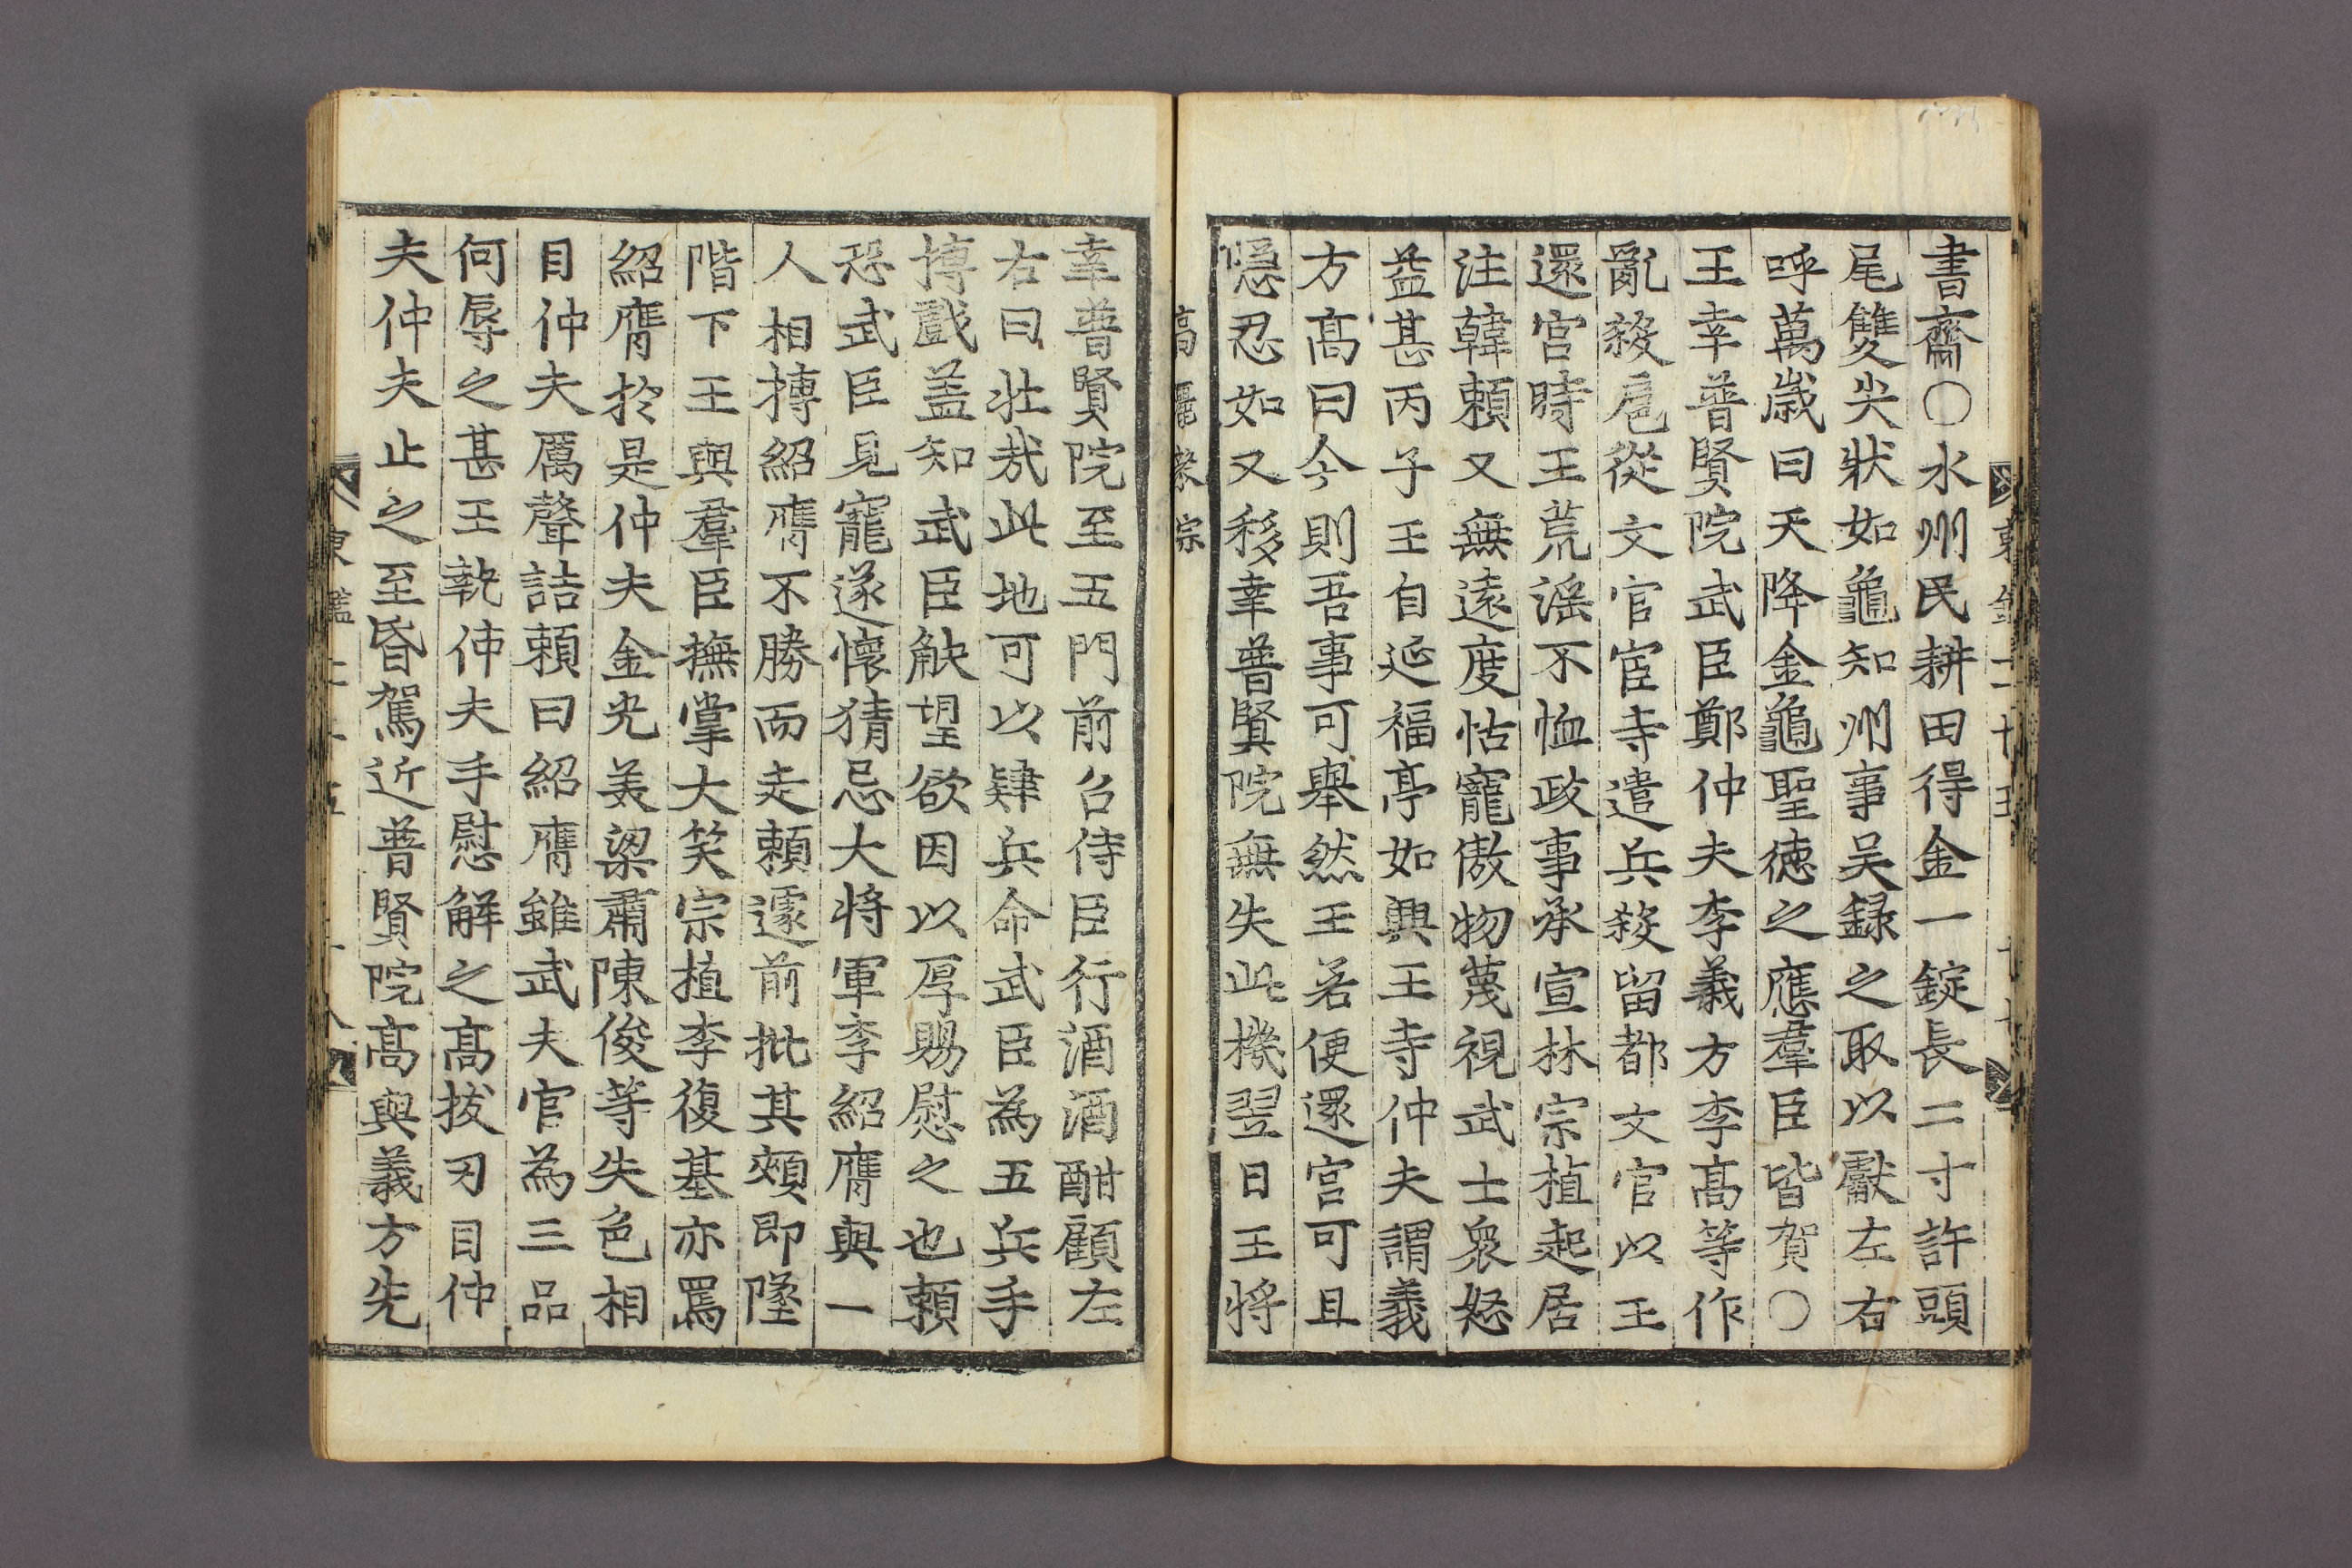 書齋○水州民耕田得金一錠長二寸許頭
尾雙尖狀如龜知州事吴録之取以獻左右
呼萬歲曰天降金龜聖德之應羣臣皆賀○
王幸普賢院武臣鄭仲夫李義方李髙等作
亂殺扈從文官宦寺遣兵殺留都文官以王
還宫時王荒滛不恤政事承宣林宗植起居
注韓頼又無遠度怙寵傲物蔑視武士衆怒
益甚丙子王自延福亭如興王寺仲夫謂義
方髙曰今則吾事可舉然王若便還宫可且
隱忍如又移幸普賢院無失此機翌日王將
高麗毅宗
幸普賢院至五門前召侍臣行酒酒酣顧左
右曰壯㢤此地可以肄兵命武臣為五兵手
搏戲盖知武臣觖望欲因以厚賜慰之也頼
恐武臣見寵遂懷猜忌大将軍李紹膺與一
人相搏紹膺不勝而走頼遽前批其頰即墜
階下王與羣臣撫掌大笑宗植李復基亦罵
紹膺於是仲夫金光美梁肅陳俊等失色相
目仲夫厲聲詰頼曰紹膺雖武夫官為三品
何辱之甚王執仲夫手慰解之髙拔刃目仲
夫仲夫止之至昏駕近普賢院髙與義方先